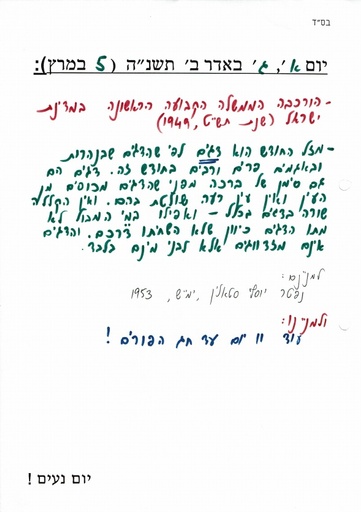 בס״ד
יום א׳, ג׳ באדר ב׳ תשנ״ה (5 במרץ):
- הורכבה הממשלה הקבועה הראשונה במדינת
ישראל (שנת תש״ט, 1949)
- מזל החודש הוא דגים לפי שהדגים שבנהרות
ובאגמים פרים ורבים בחודש זה. דגים הם
גם סימן של ברכה מפני שהדגים מכוסים מן
העין ואין עין רעה שולטת בהם. ואין הקללה
שורה בדגים בכלל - ואפילו במי המבול לא
מתו הדגים כיוון שלא השחיתו דרכם. והדגים
אינם מזדווגים אלא לבני מינם בלבד.
למנינם:
נפטר יוסף סטאלין, ימ״ש, 1953
ולמנינו:
עוד 11 יום עד חג הפורים!
יום נעים!